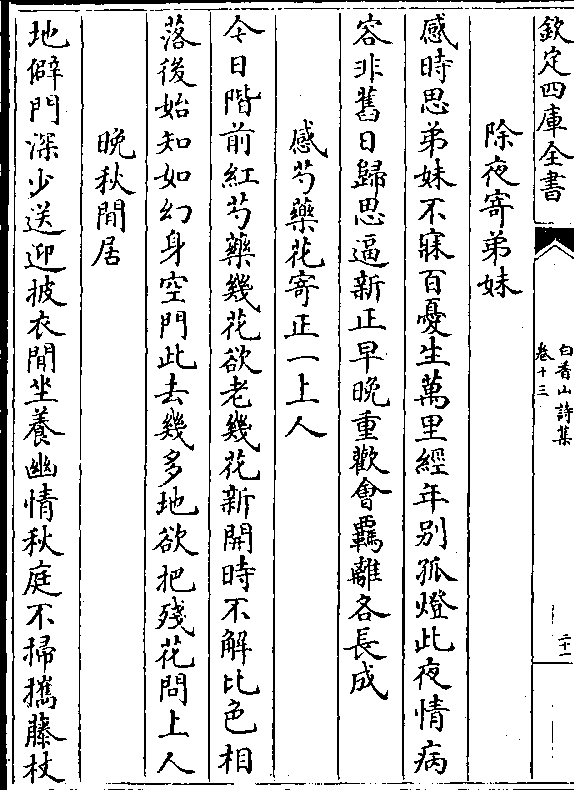 欽定四庫全書
白香山詩集
卷十三
二十一
除夜寄弟妹
感時思弟妹不寐百憂生萬里經年别孤燈此夜情病
容非舊日歸思逼新正早晚重歡會羈離各長成
感芍藥花寄正一上人
今日階前紅芍藥幾花欲老幾花新開時不解比色相
落後始知如幻身空門此去幾多地欲把殘花問上人
晩秋閒居
地僻門深少送迎披衣閒坐養幽情秋庭不掃攜藤杖